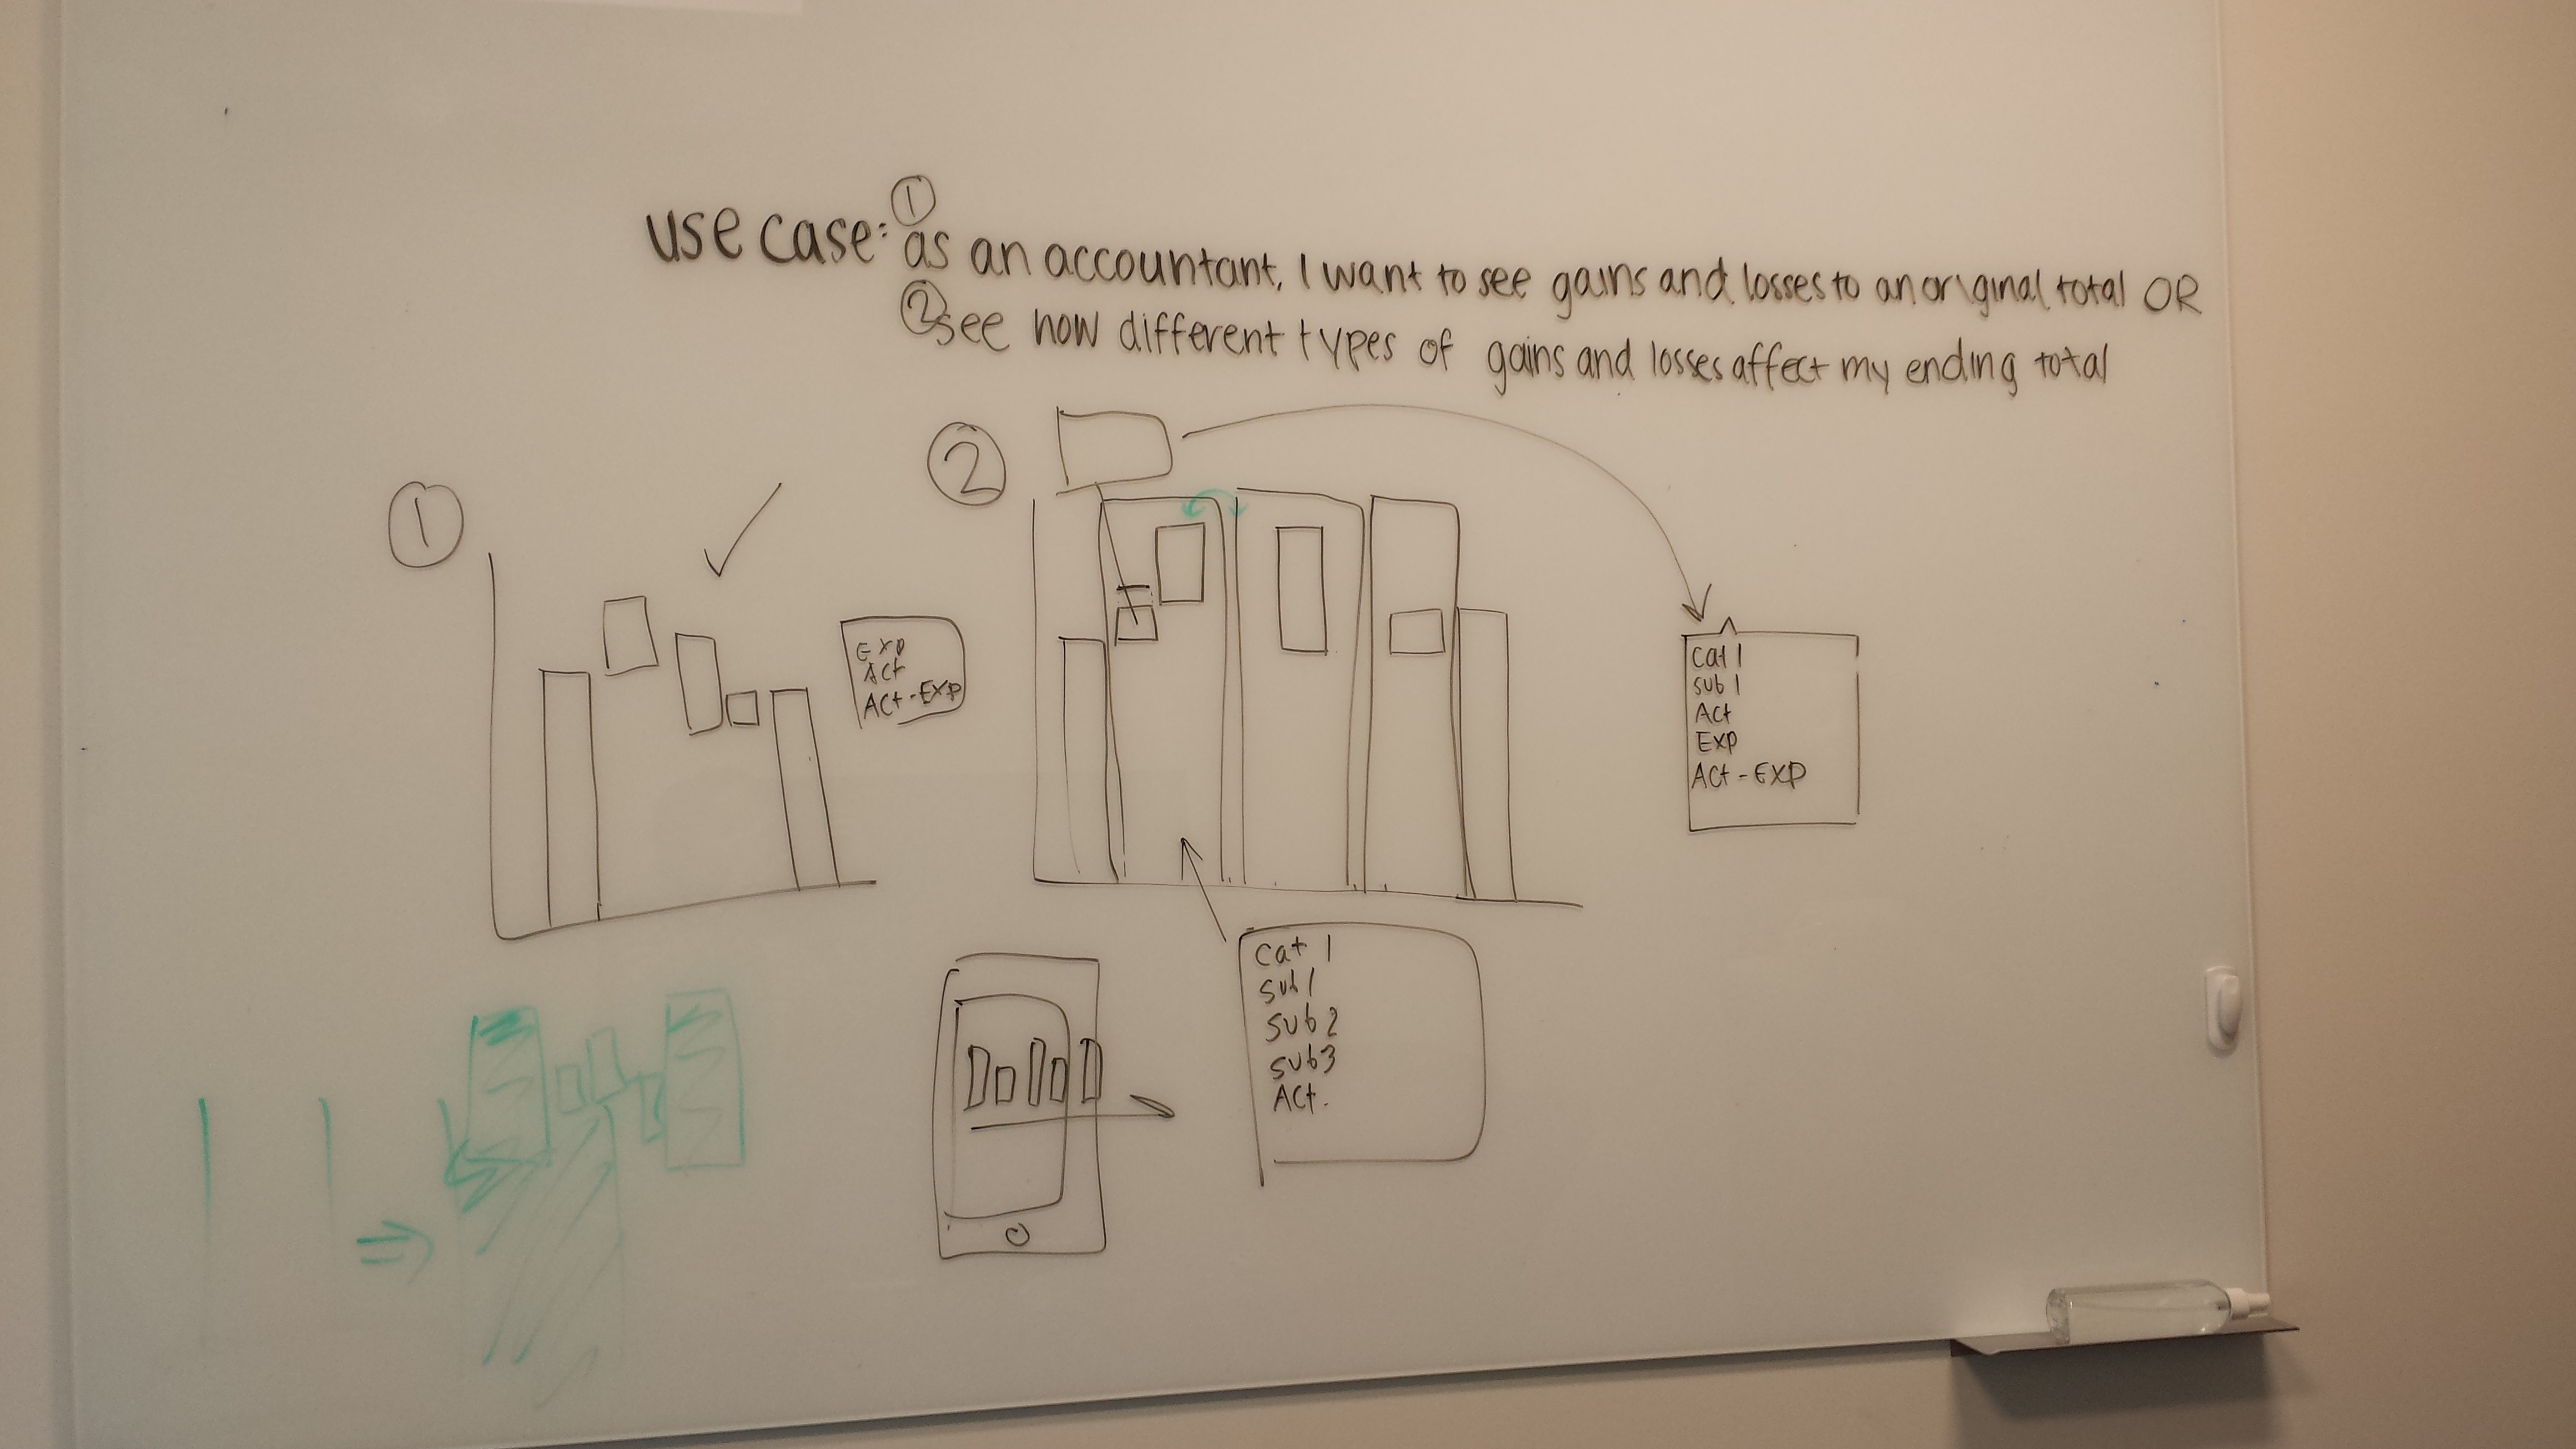 use case: ① as an accountant, I want to see gains and losses to an original total OR
② see how different types of gains and losses affect my ending total
①
②
Exp
Act
Act - Exp
Cat 1
sub 1
Act
Exp
Act - Exp
Cat 1
sub 1
sub 2
sub 3
Act.